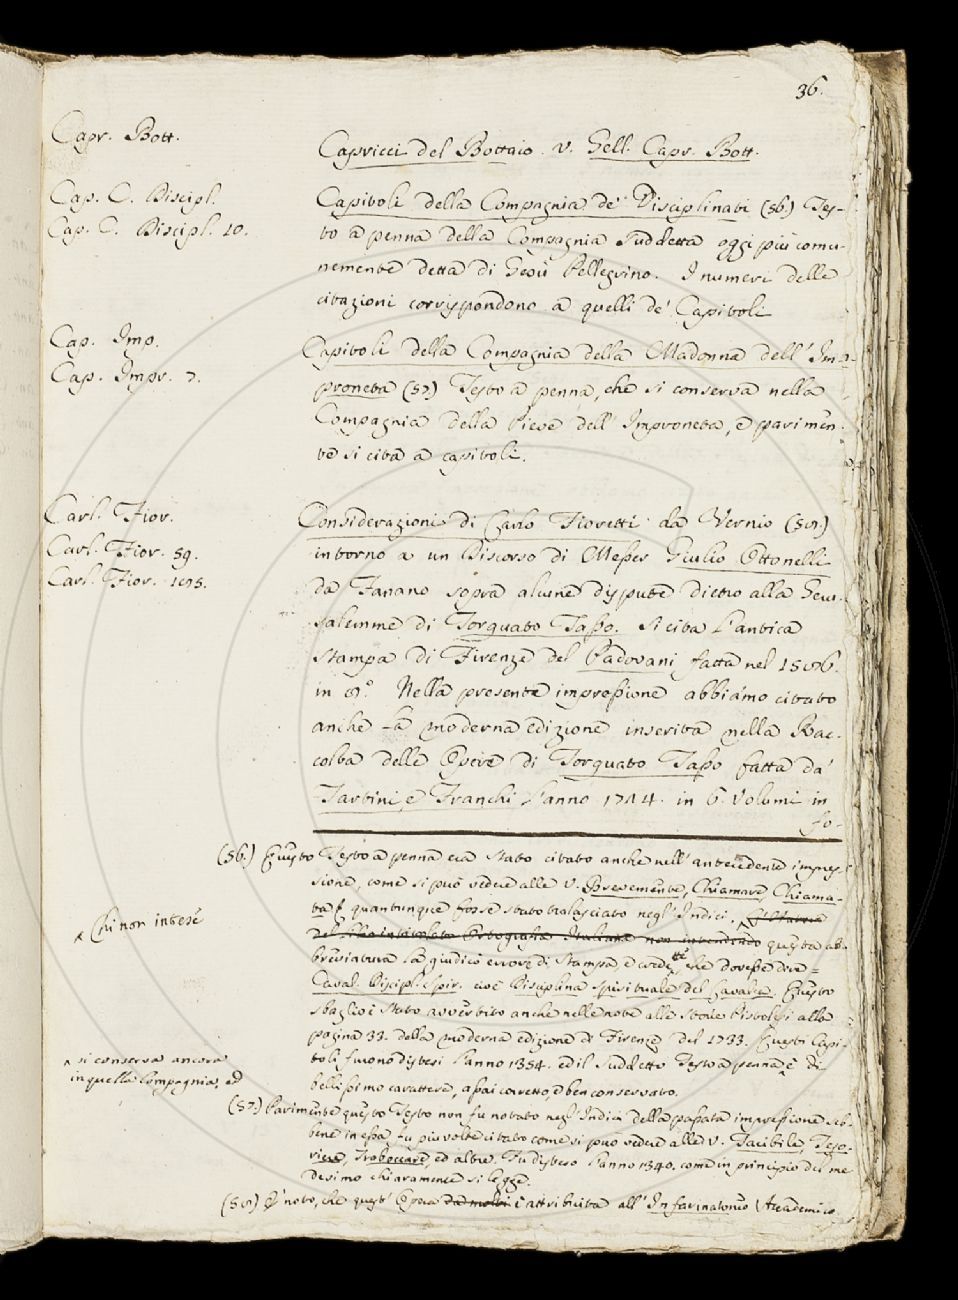 36.
Capr. Bott.
Capricci del Bottaio. v. Gell. Capr. Bott.
Cap. C. Discipl.
Cap. C. Discipl. 10.
Capitoli della Compagnia de' Disciplinati (56) Tes-
to a penna della Compagnia suddetta oggi più comu-
nemente detta di Gesù Pellegrino. I numeri delle
citazioni corrispondono a quelli de' Capitoli
Cap. Imp.
Cap. Impr. 7.
Capitoli della Compagnia della Madonna dell' Im-
proneta (57) Testo a penna, che si conserva nella
Compagnia della Pieve dell' Improneta, e parimen-
te si cita a capitoli.
Carl. Fior.
Carl. Fior. 59.
Carl. Fior. 105.
Considerazioni di Carlo Fioretti da Vernio (58)
intorno a un Discorso di Messer Giulio Ottonelli
da Fanano sopra alcune dispute dietro alla Geru-
salemme di Torquato Tasso. Si cita l'antica
stampa di Firenze del Padovani fatta nel 1586.
in 8.° Nella presente impressione abbiamo citato
anche la moderna edizione inserita nella Rac-
colta delle Opere di Torquato Tasso fatta da'
Tartini, e Franchi l'anno 1724. in 6. Volumi in
fo-
(56.) Questo Testo a penna era stato citato anche nell' antecedente impres-
sione, come si può vedere alle V. Brevemente, Chiamare, Chiama-
ta quantunque fosse stato tralasciato negl' Indici.
x Chi non intese
del intitolato Ortografia Italiana non intendendo questa ab-
breviatura la giudicò errore di Stampa, e credette, che dovesse dire =
Caval. Discipl. Spir. cioè Disciplina spirituale del Cavalca. Questo
sbaglio è stato avvertito anche nelle note alle Storie Pistolesi alla
pagina 33. della moderna edizione di Firenze del 1733. Questi Capi-
toli furono distesi l'anno 1354. ed il suddetto Testo a penna è di
^ si conserva ancora
in quella Compagnia, ed
bellissimo carattere, assai corretto, e ben conservato.
(57.) Parimente questo Testo non fu notato negl' Indici della passata impressione seb-
bene in essa fu più volte citato come si può vedere alle V. Tacibile, Teso-
riere, Traboccare, ed altre. Fu disteso l'anno 1340. come in principio del me-
desimo chiaramente si legge.
(58) E' noto, che quest' Opera da molti è attribuita all' Infarinato Accademico